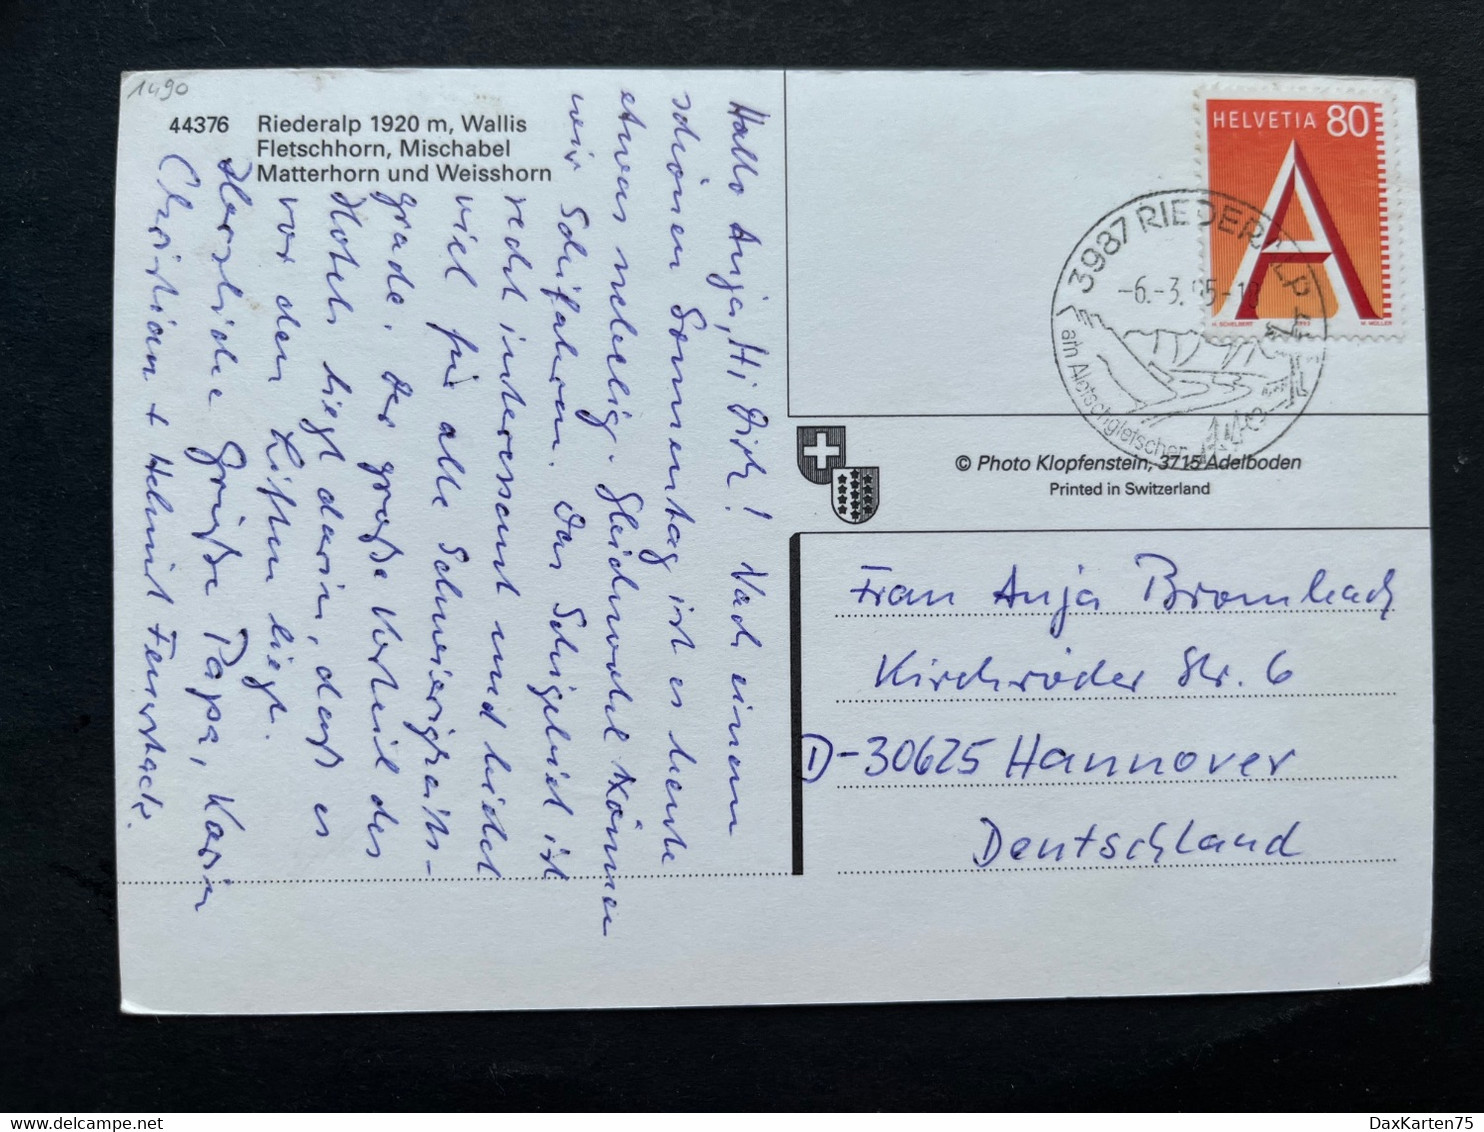 1490
44376 Riederalp 1920 m, Wallis
Fletschhorn, Mischabel
Matterhorn und Weisshorn
Hallo Anja, Hi Dirk! Nach einem
schönen Sonnentag ist es heute
etwas nebelig. Gleichwohl können
wir Schifahren. Das Schigebiet ist
recht interessant und bietet
viel für alle Schwierigkeits-
grade. Der große Vorteil des
Hotels liegt darin, daß es
vor den Liften liegt.
Herzliche Grüße Papa, Karin
Christian + Helmut
HELVETIA 80
A
3987 RIEDERALP
-6.-3.95-18
am Aletschgletscher
© Photo Klopfenstein, 3715 Adelboden
Printed in Switzerland
Frau Anja Brombach
Kirchröder Str. 6
D-30625 Hannover
Deutschland
DaxKarten75